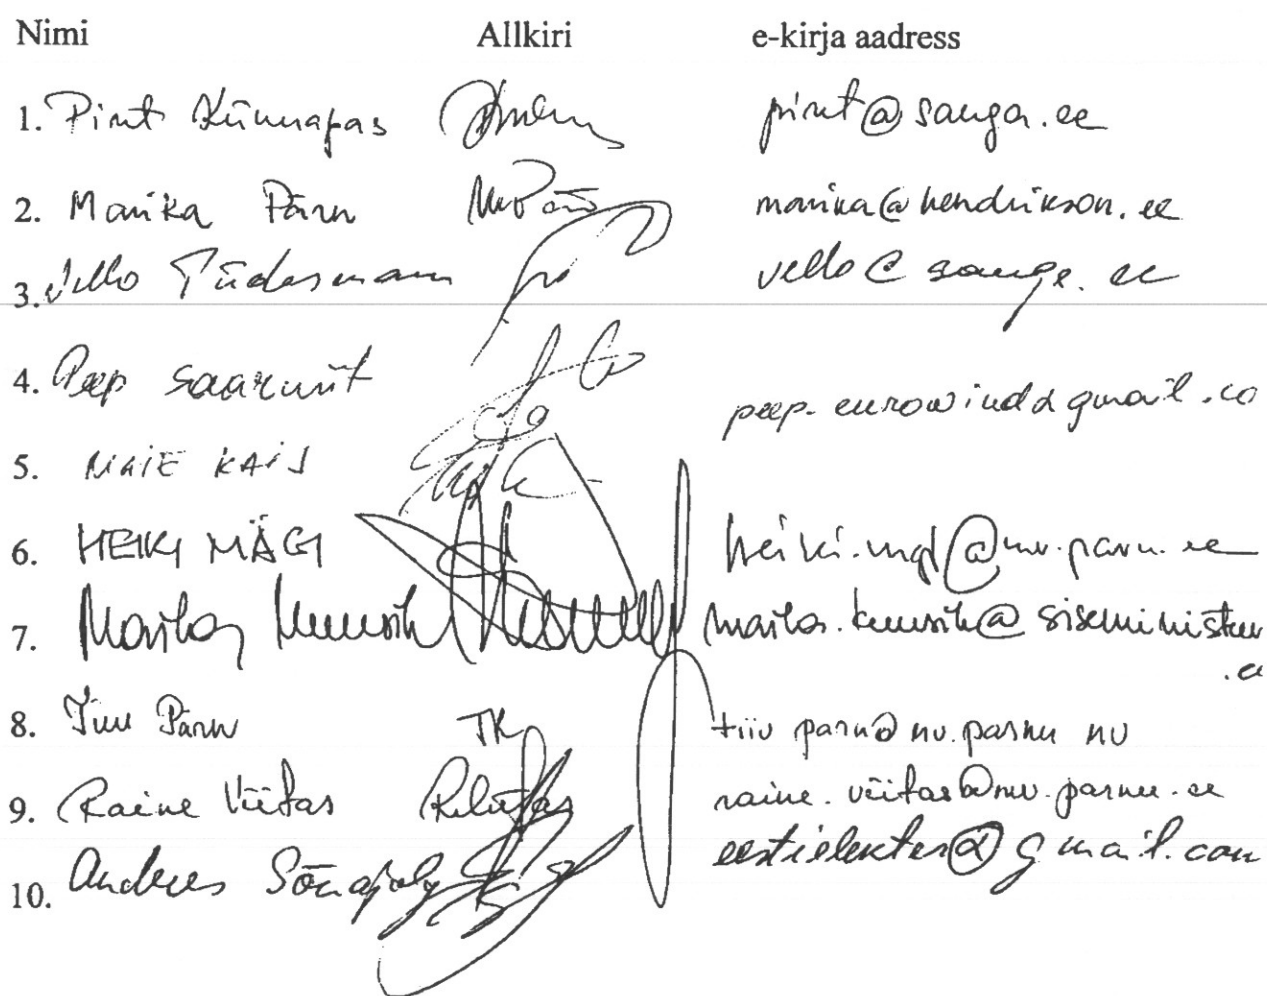 Nimi Allkiri e-kirja aadress
1. Pirit Künnapas pirit@sauga.ee
2. Marika Pärn MPärn marika@hendrikson.ee
3. Vello Tüdesmann vello@sauga.ee
4. Peep Saarnit peep.eurowind@gmail.co
5. MAIE KAIS
6. HEIKI MÄGI heiki.mgi@mv.parnu.ee
7. Marika Kuusik @siseministeer
.ee
8. Tiiu Pärn tiiu parn@mv.parnu
9. Raine Viitas RViitas raine.viitas@mv.parnu.ee
10. Andres Sõnajalg @gmail.com